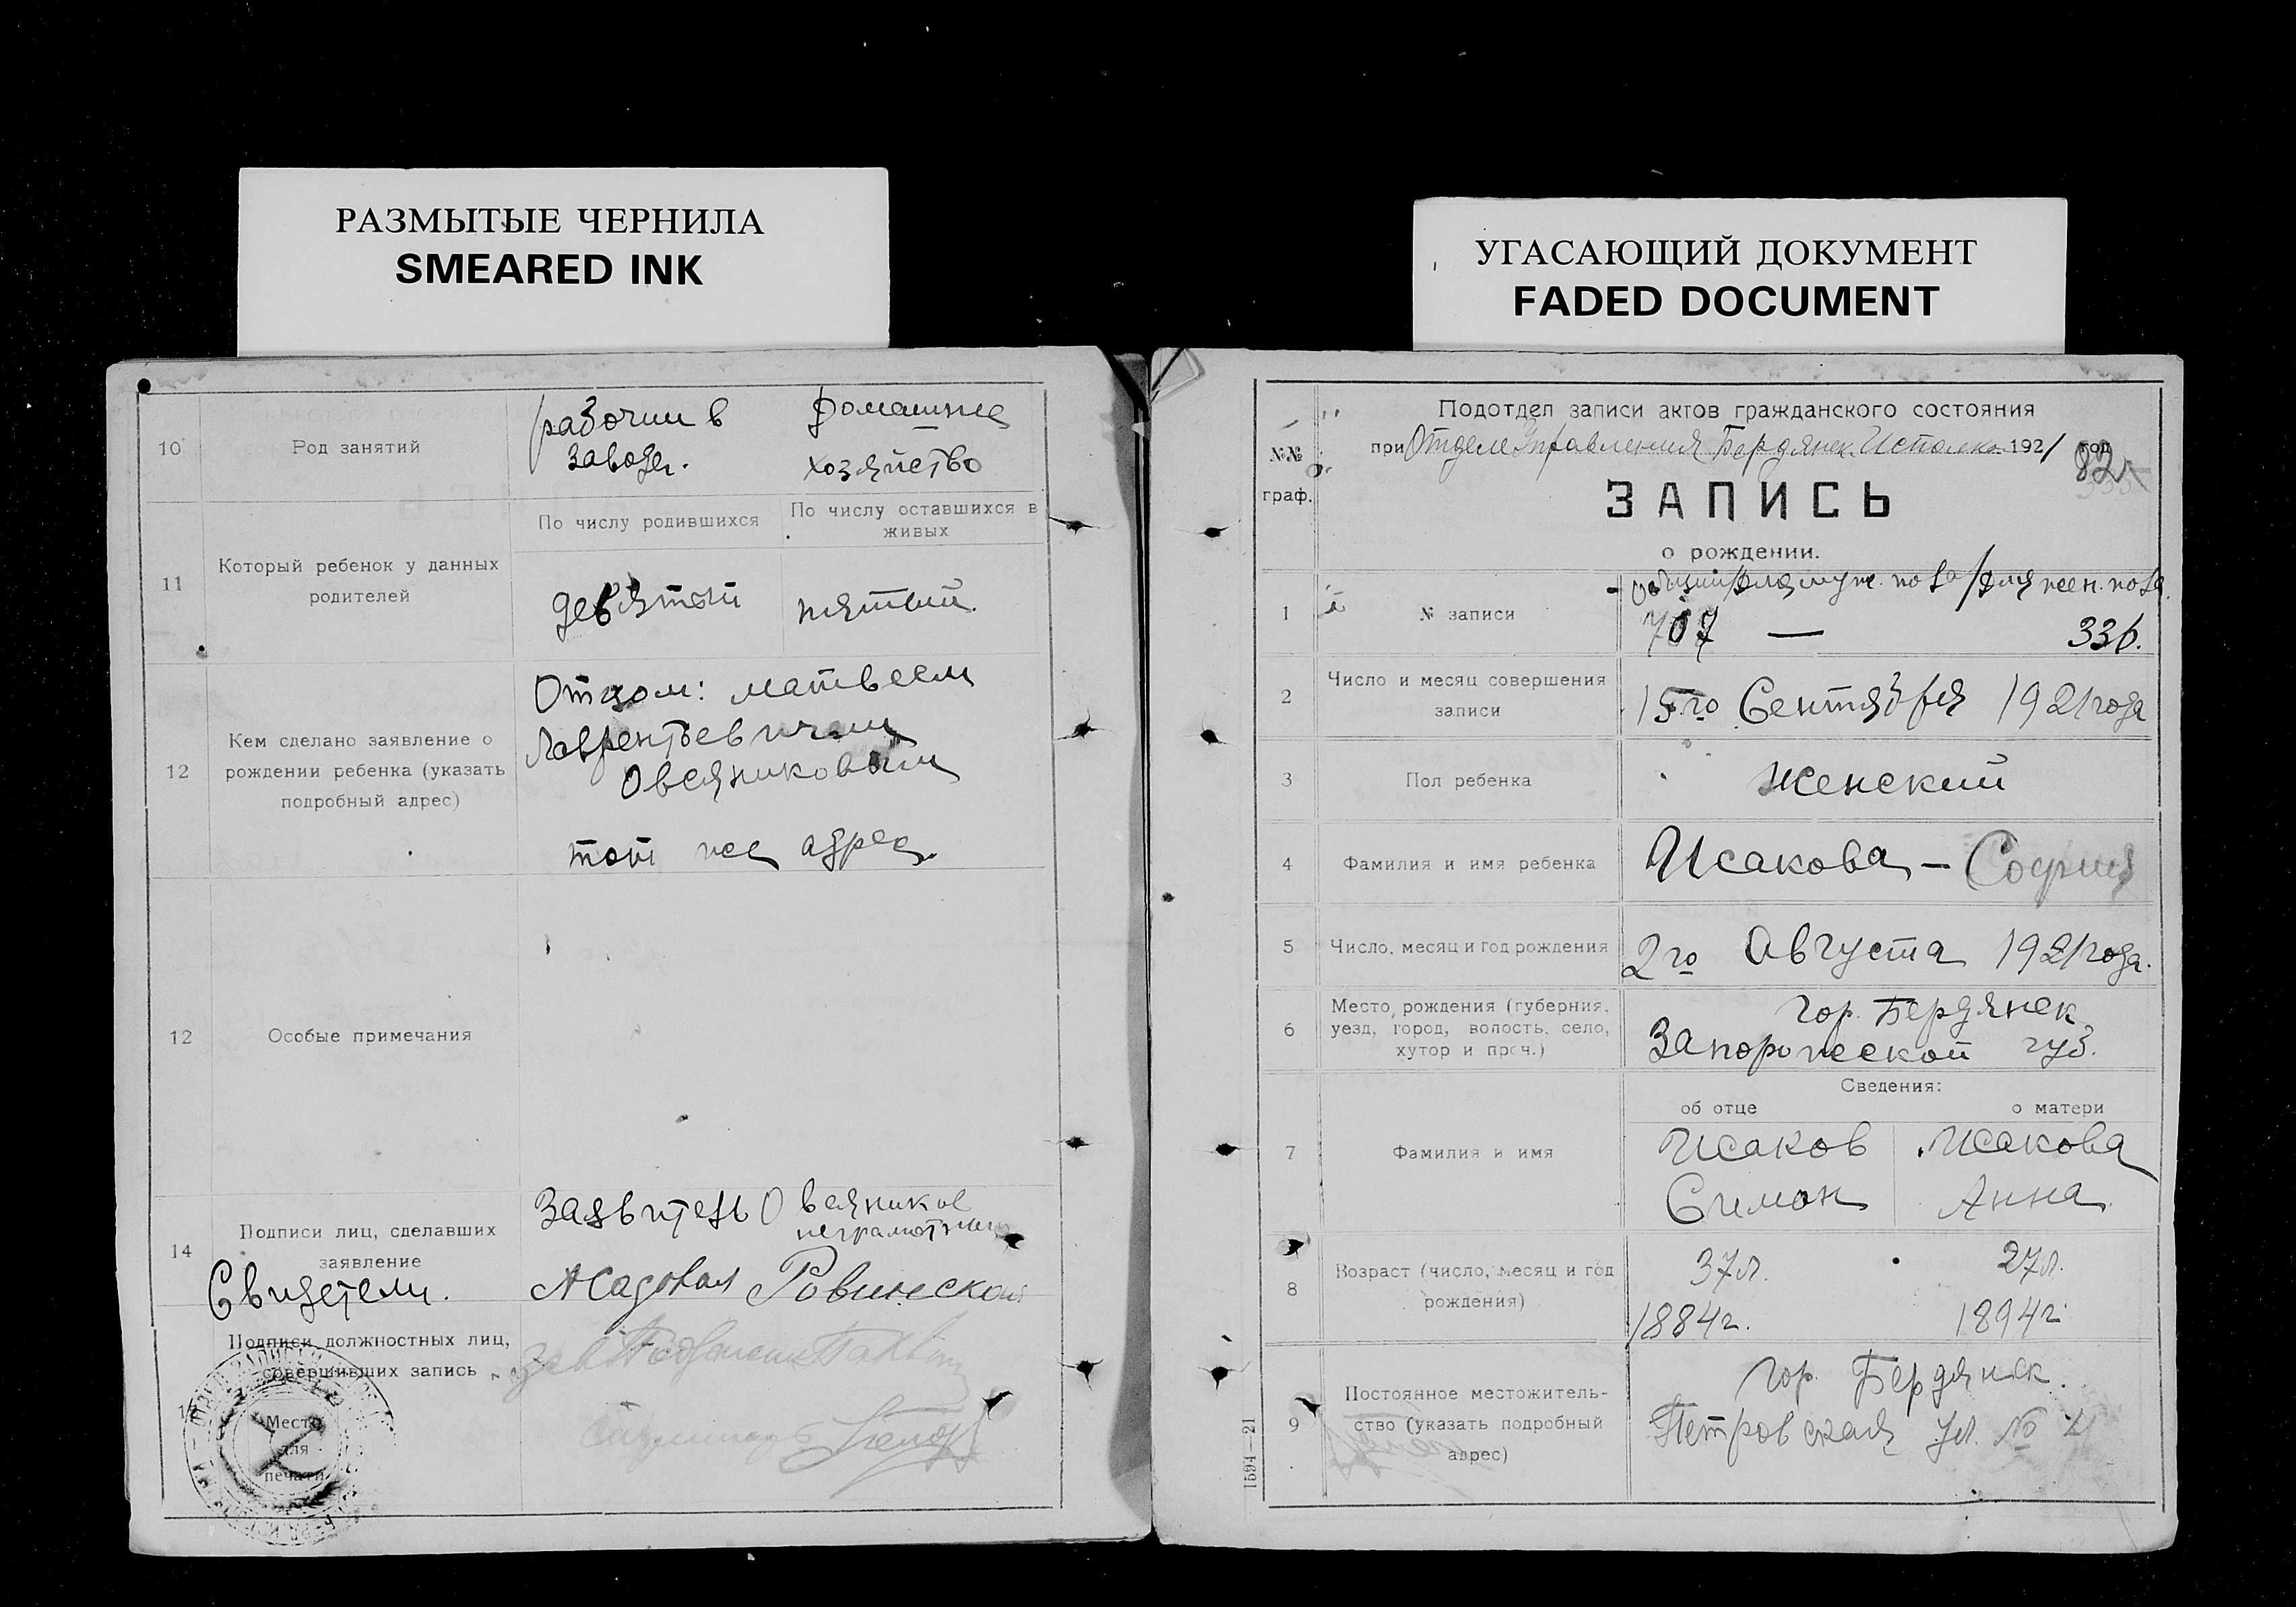 РАЗМЫТЫЕ ЧЕРНИЛА
SMEARED INK
10
Род занятий
рабочий в
заводе.
домашнее
хозяйство
11
Который ребенок у данных
родителей
По числу родившихся
По числу оставшихся в
живых
девятый
пятый.
12
Кем сделано заявление о
рождении ребенка (указать
подробный адрес)
Отцом: Матвеем
Лаврентьевичем
Овсяниковым
тот же адрес.
12
Особые примечания
14
Подписи лиц, сделавших
заявление
Свидетели.
Заявитель Овсяников
неграмотный
Ровинская
Подписи должностных лиц,
совершивших запись
Место
для
печати
УГАСАЮЩИЙ ДОКУМЕНТ
FADED DOCUMENT
№№
граф.
Подотдел записи актов гражданского состояния
при Отделе Управления Бердянск. Исполко 1921 год
82
ЗАПИСЬ
о рождении.
1
№ записи
Общий для муж. пола для жен. пола
707 — 336.
2
Число и месяц совершения
записи
15го Сентября 1921 года
3
Пол ребенка
Женский
4
Фамилия и имя ребенка
Исакова – София
5
Число, месяц и год рождения
2го Августа 1921 года.
6
Место рождения (губерния,
уезд, город, волость, село,
хутор и проч.)
гор. Бердянск
Запорожской губ.
Сведения:
об отце
о матери
7
Фамилия и имя
Исаков
Симон
Исакова
Анна.
8
Возраст (число, месяц и год
рождения)
37л.
1884г.
27л.
1894г.
9
Постоянное местожитель-
ство (указать подробный
адрес)
гор. Бердянск.
Петровская ул. №
1594—21